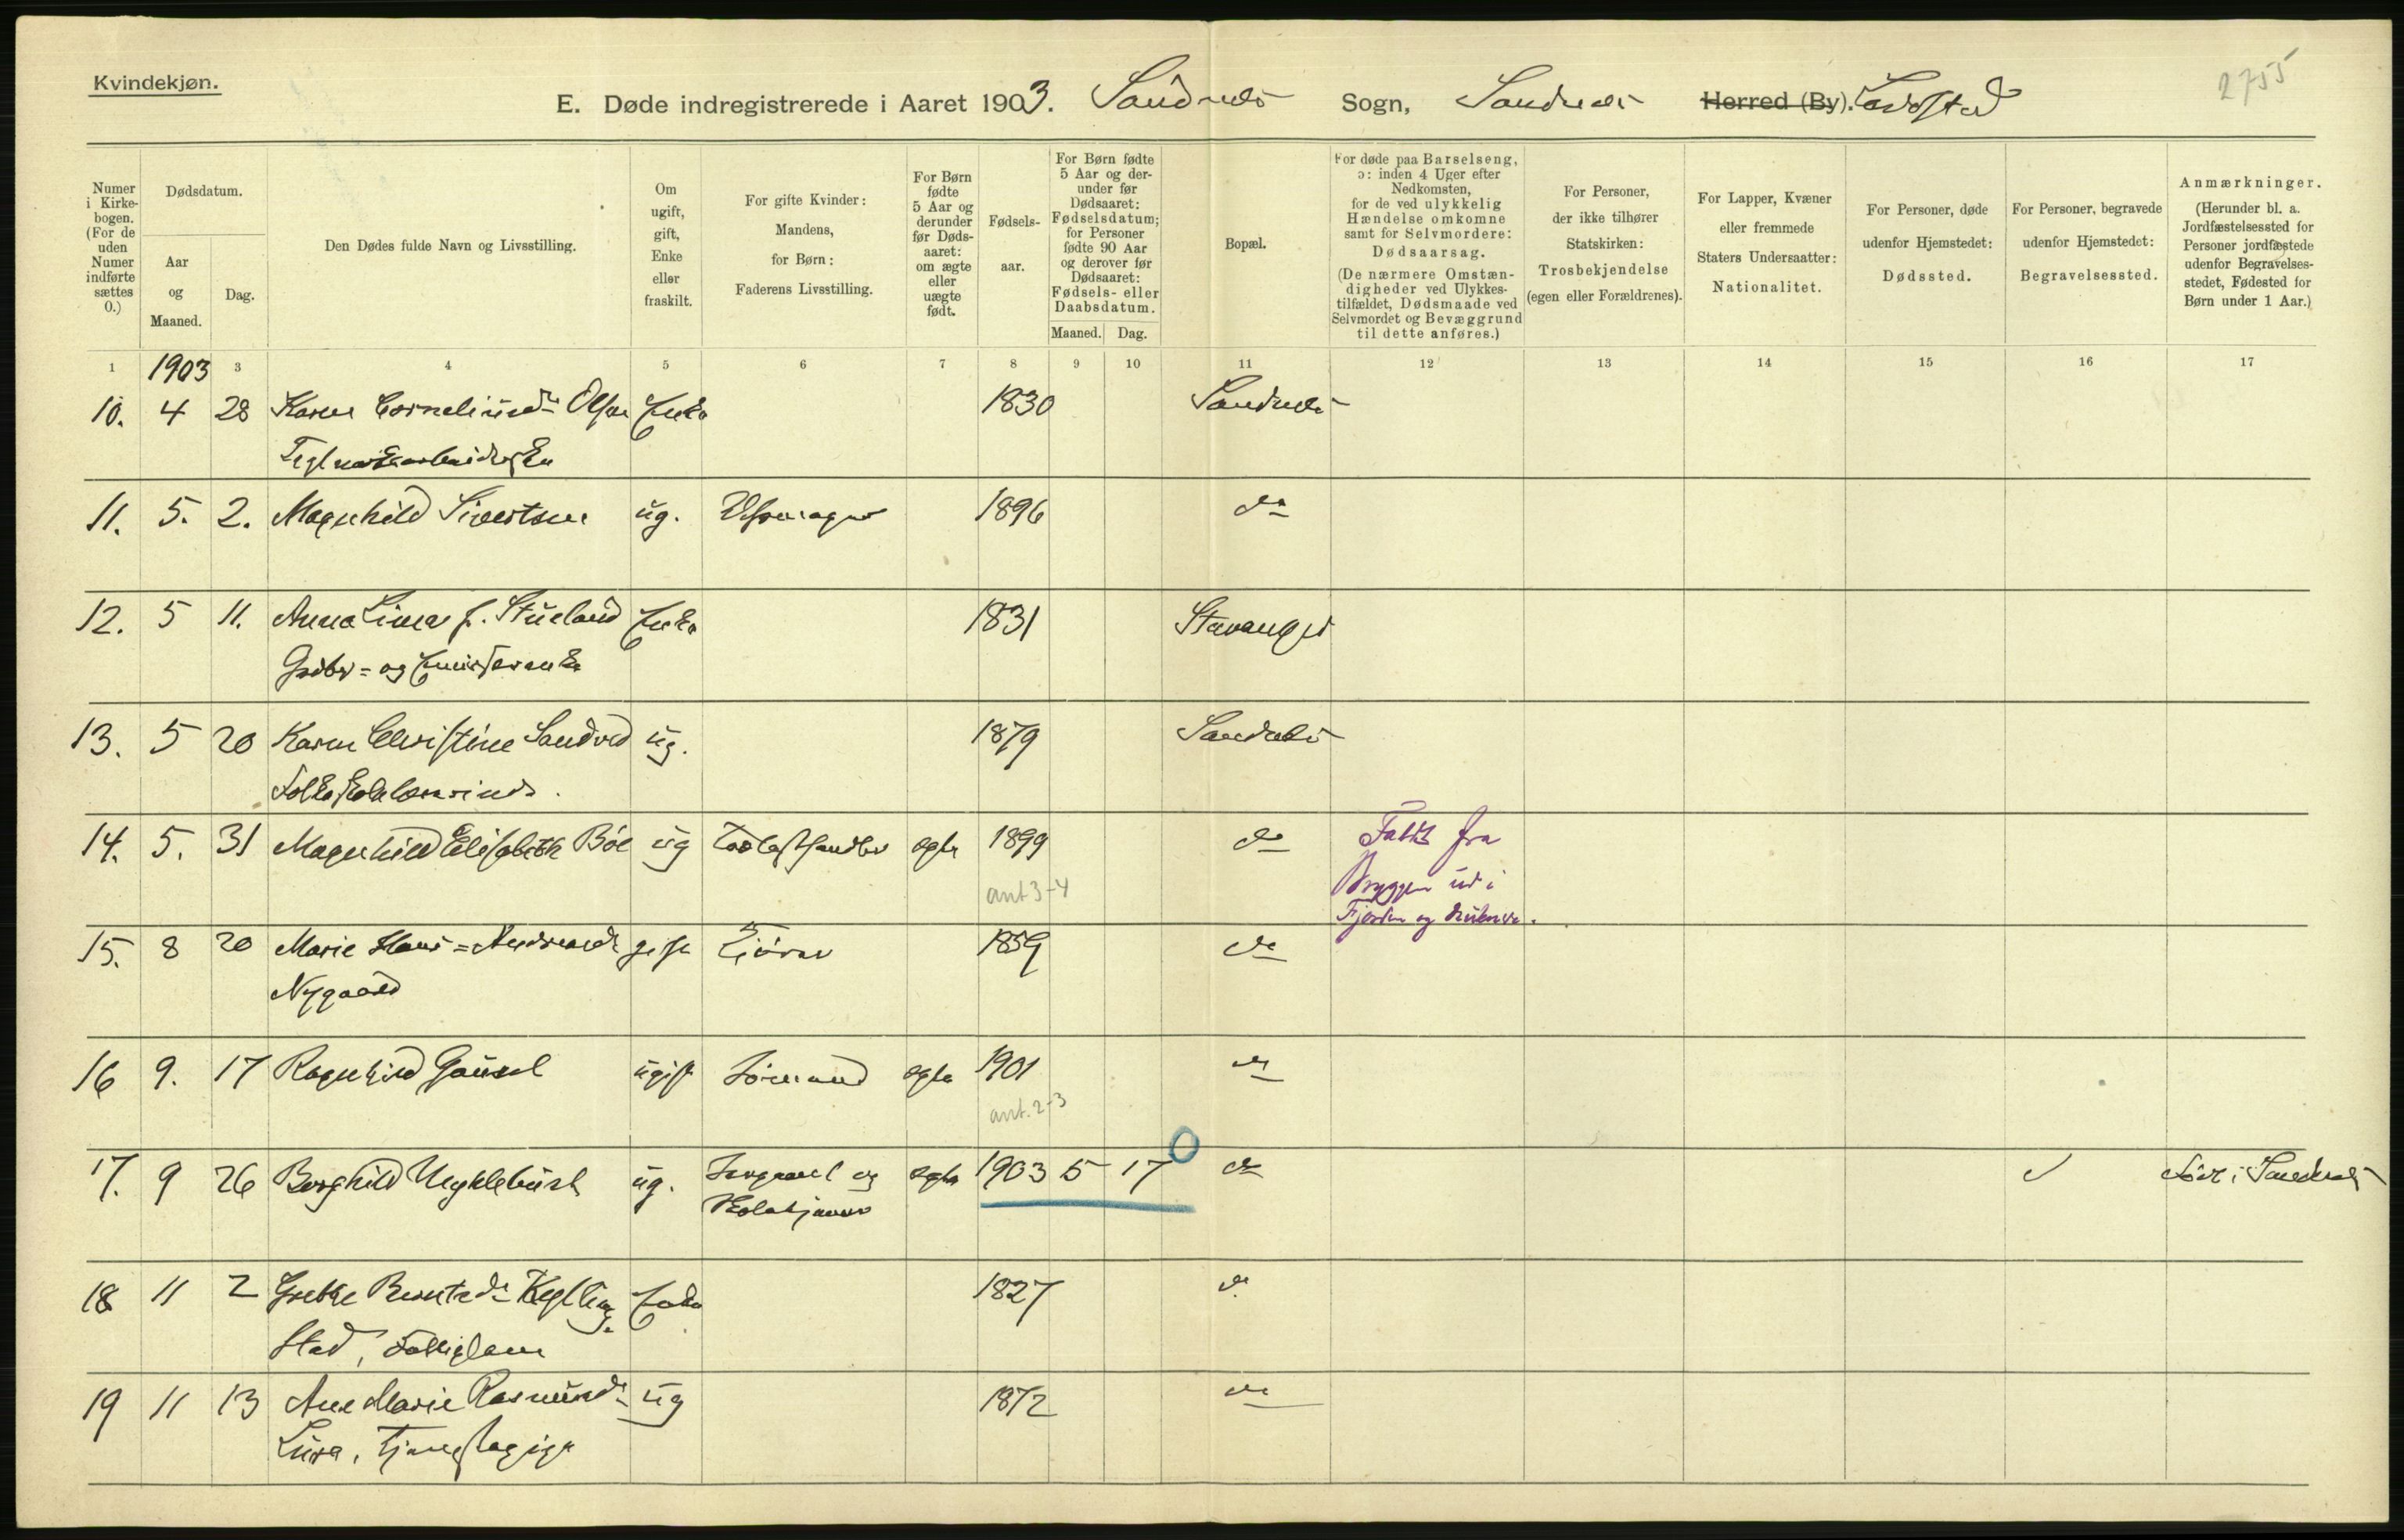 Kvindekjøn.
2755
E. Døde indregistrerede i Aaret 1903. Sandnæs Sogn, Sandnæs Herred (By). Ladested
Numer i Kirkebogen. (For de uden Numer indførte sættes 0.)
Dødsdatum.
Aar og Maaned.
Dag.
Den Dødes fulde Navn og Livsstilling.
Om ugift, gift, Enke eller fraskilt.
For gifte Kvinder: Mandens, for Børn: Faderens Livsstilling.
For Børn fødte 5 Aar og derunder før Dødsaaret: om ægte eller uægte født.
Fødselsaar.
For Børn fødte 5 Aar og derunder før Dødsaaret: Fødselsdatum; for Personer fødte 90 Aar og derover før Dødsaaret: Fødsels- eller Daabsdatum.
Maaned. Dag.
Bopæl.
For døde paa Barselseng, ɔ: inden 4 Uger efter Nedkomsten, for de ved ulykkelig Hændelse omkomne samt for Selvmordere: Dødsaarsag. (De nærmere Omstændigheder ved Ulykkestilfældet, Dødsmaade ved Selvmordet og Bevæggrund til dette anføres.)
For Personer, der ikke tilhører Statskirken: Trosbekjendelse (egen eller Forældrenes).
For Lapper, Kvæner eller fremmede Staters Undersaatter: Nationalitet.
For Personer, døde udenfor Hjemstedet: Dødssted.
For Personer, begravede udenfor Hjemstedet: Begravelsessted.
Anmærkninger. (Herunder bl. a. Jordfæstelsessted for Personer jordfæstede udenfor Begravelsesstedet, Fødested for Børn under 1 Aar.)
1 1903 3 4 5 6 7 8 9 10 11 12 13 14 15 16 17
10. 4 28 Karen Corneliusd. Olsen Enke 1830 Sandnæs
Teglverksarbeidersen
11. 5. 2. Magnhild Sivertsen ug. Uhrmager 1896 do
12. 5 11. Anna Lima f. Stueland Enke 1831 Stavanger
Gaardbr= og
13. 5 20 Karen Christine Sandved ug. 1879 Sandnæs
Folkeskolelærerinde.
14. 5. 31 Magnhild Elisabeth Bøe ug Landhandler ægte 1899 do Faldt fra
ant 3-4 Bryggen ud i
Fjorden og druknede.
15. 8 20 Marie Hans=Andreasd. gift Kjører 1859 do
Nygaard
16 9. 17 Ragnhild Gausel ugift Sømand ægte 1901 do
ant. 2-3
17. 9 26 Borghild Myklebust ug. og ægte 1903 5 17 0 do Født i Sandnæs
18 11 2 Grethe Berntsd. Kyllingstad, Fattiglem Enke 1827 do
19 11 13 Ane Marie Rasmusd. ug 1872 do
Lura, Tjenestepige